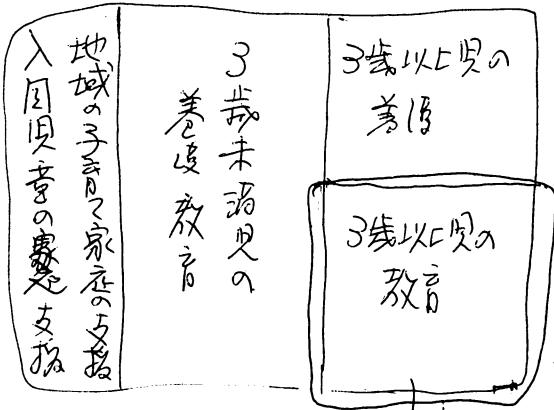 3歳以上児の
養護
3歳以上児の
教育
3歳未満児の
養護 教育
地域の子育て家庭の支援
入園児童の家庭支援